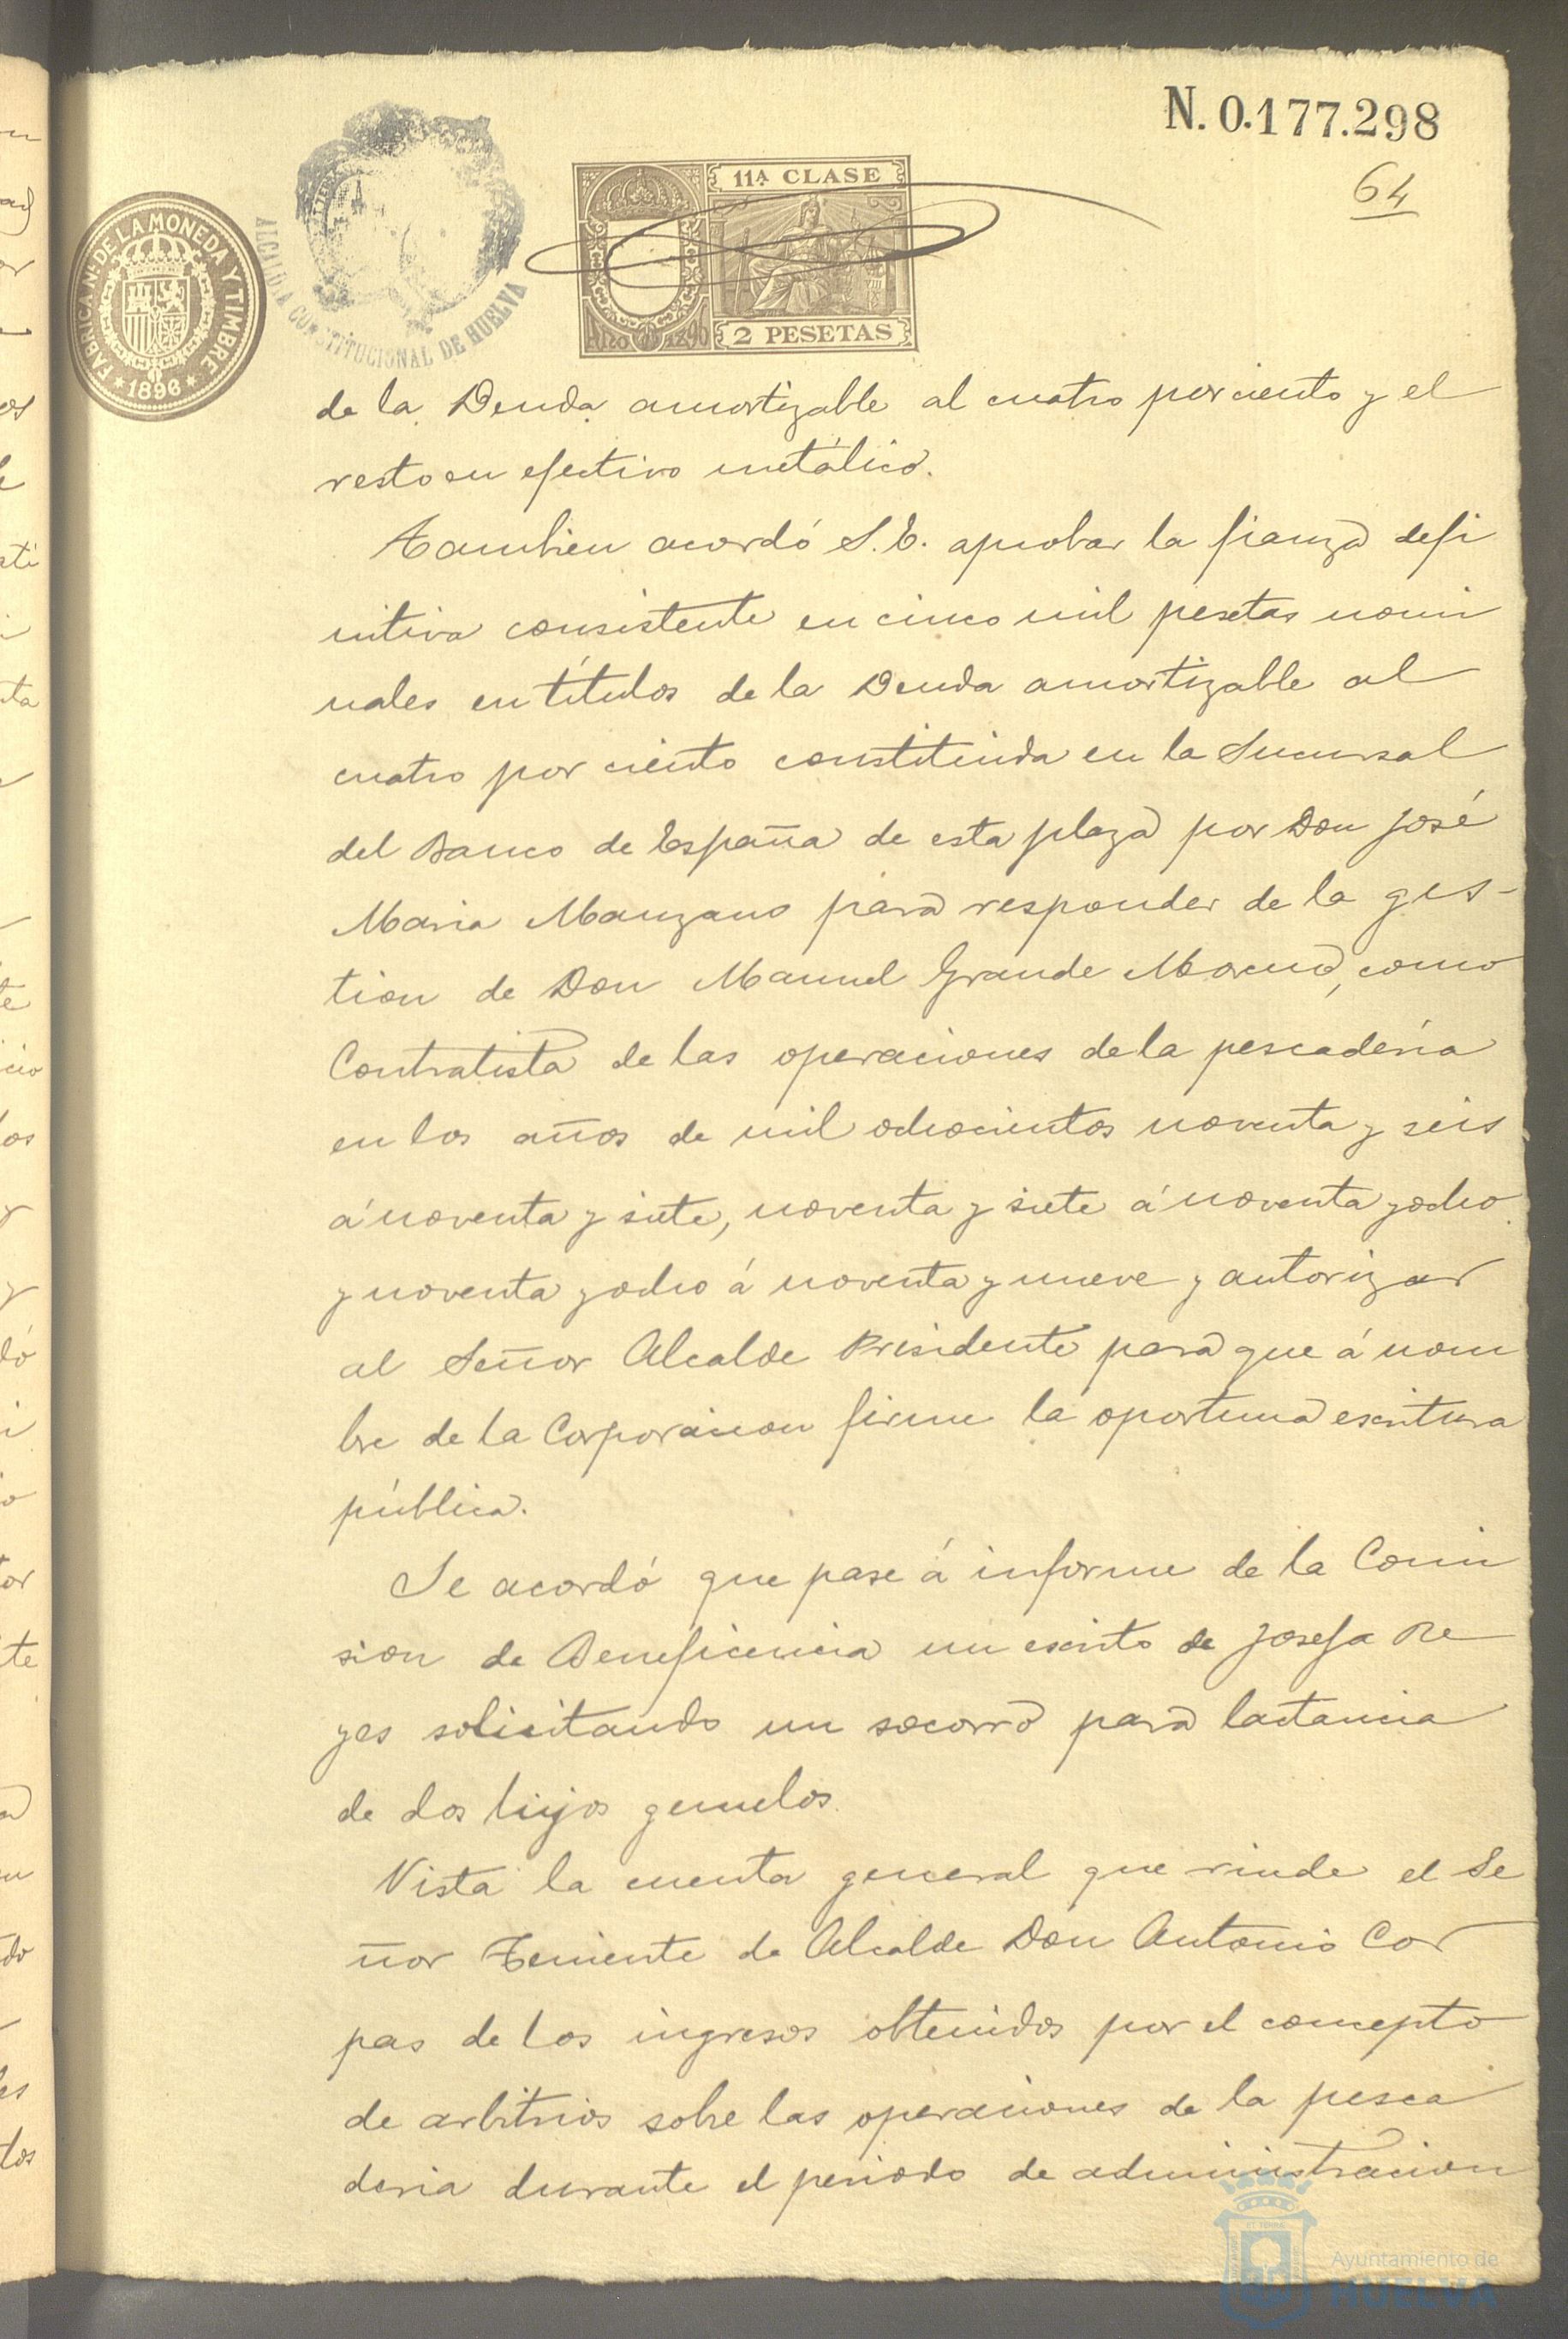 N. 0.177.298
64
11ª CLASE
2 PESETAS
FABRICA Nl. DE LA MONEDA Y TIMBRE
* 1896 *
ALCALDIA CONSTITUCIONAL DE HUELVA
de la Deuda amortizable al cuatro por ciento y el
resto en efectivo metálico.
Tambien acordó S.E. aprobar la fianza defi
nitiva consistente en cinco mil pesetas nomi
nales en títulos de la Deuda amortizable al
cuatro por ciento constituida en la Sucursal
del Banco de España de esta plaza por Don José
Maria Manzano para responder de la ges-
tion de Don Manuel Grande Moreno, como
Contratista de las operaciones de la pescadería
en los años de mil ochocientos noventa y seis
á noventa y siete, noventa y siete á noventa y ocho
y noventa y ocho á noventa y nueve y autorizar
al Señor Alcalde Presidente para que á nom
bre de la Corporacion firme la oportuna escritura
pública.
Se acordó que pase á informe de la Comi
sion de Beneficencia un escrito de Josefa Re
yes solicitando un socorro para lactancia
de dos hijos gemelos.
Vista la cuenta general que rinde el Se
ñor Teniente de Alcalde Don Antonio Cor
pas de los ingresos obtenidos por el concepto
de arbitrios sobre las operaciones de la pesca
deria durante el periodo de administracion
Ayuntamiento de
HUELVA